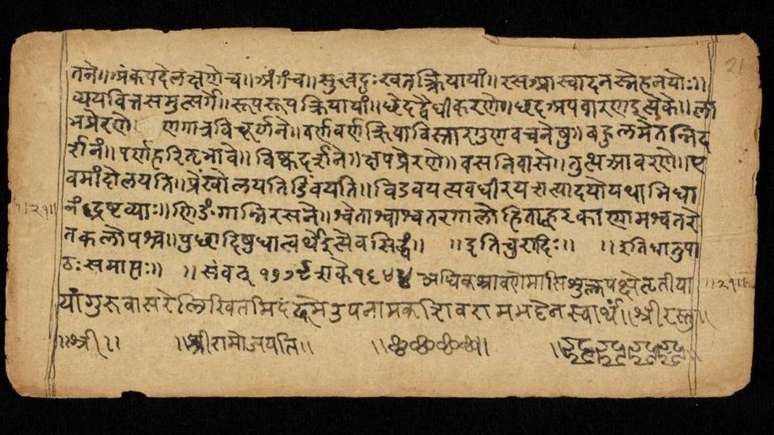 तने॥अंकपदेलक्षणेच॥अंगच॥सुखदुःखतत्क्रियायां॥रसआस्वादनस्नेहनयोः॥
व्ययवित्तसमुत्सर्गे॥रूपरूपक्रियायां॥छेदद्वैधीकरणे॥छदअपवारणइत्येके॥ला
भप्रेरणे॥व्रणगात्रविचूर्णने॥वर्णवर्णक्रियाविस्तारगुणवचनेषु॥बहुलमेतन्निद
र्शनं॥पर्णहरितभावे॥विष्कदर्शने॥क्षपप्रेरणे॥वसनिवासे॥तुत्थआवरणे॥ए
वमांदोलयति॥प्रेंखोलयति विडंबयति॥अवधीरय
नं द्रष्टव्याः॥णिङंगान्निरसने॥श्वेताश्वाश्वतरगालोडिताह्वरकाणामश्वतरे
तकलोपश्च॥पुच्छादिषुधात्वर्थइत्येवसिद्धं॥ ॥इतिचुरादिः॥ ॥इतिधातुपा
ठःसमाप्तः॥ ॥संवत् शके अधिकश्रावणेमासिशुक्लपक्षे तृतीया
यांगुरुवासरेलिखितमिदं उपनामक शिवरामभट्टेनस्वार्थं॥श्रीरस्तु॥
॥श्री॥ ॥श्रीरामोजयति॥